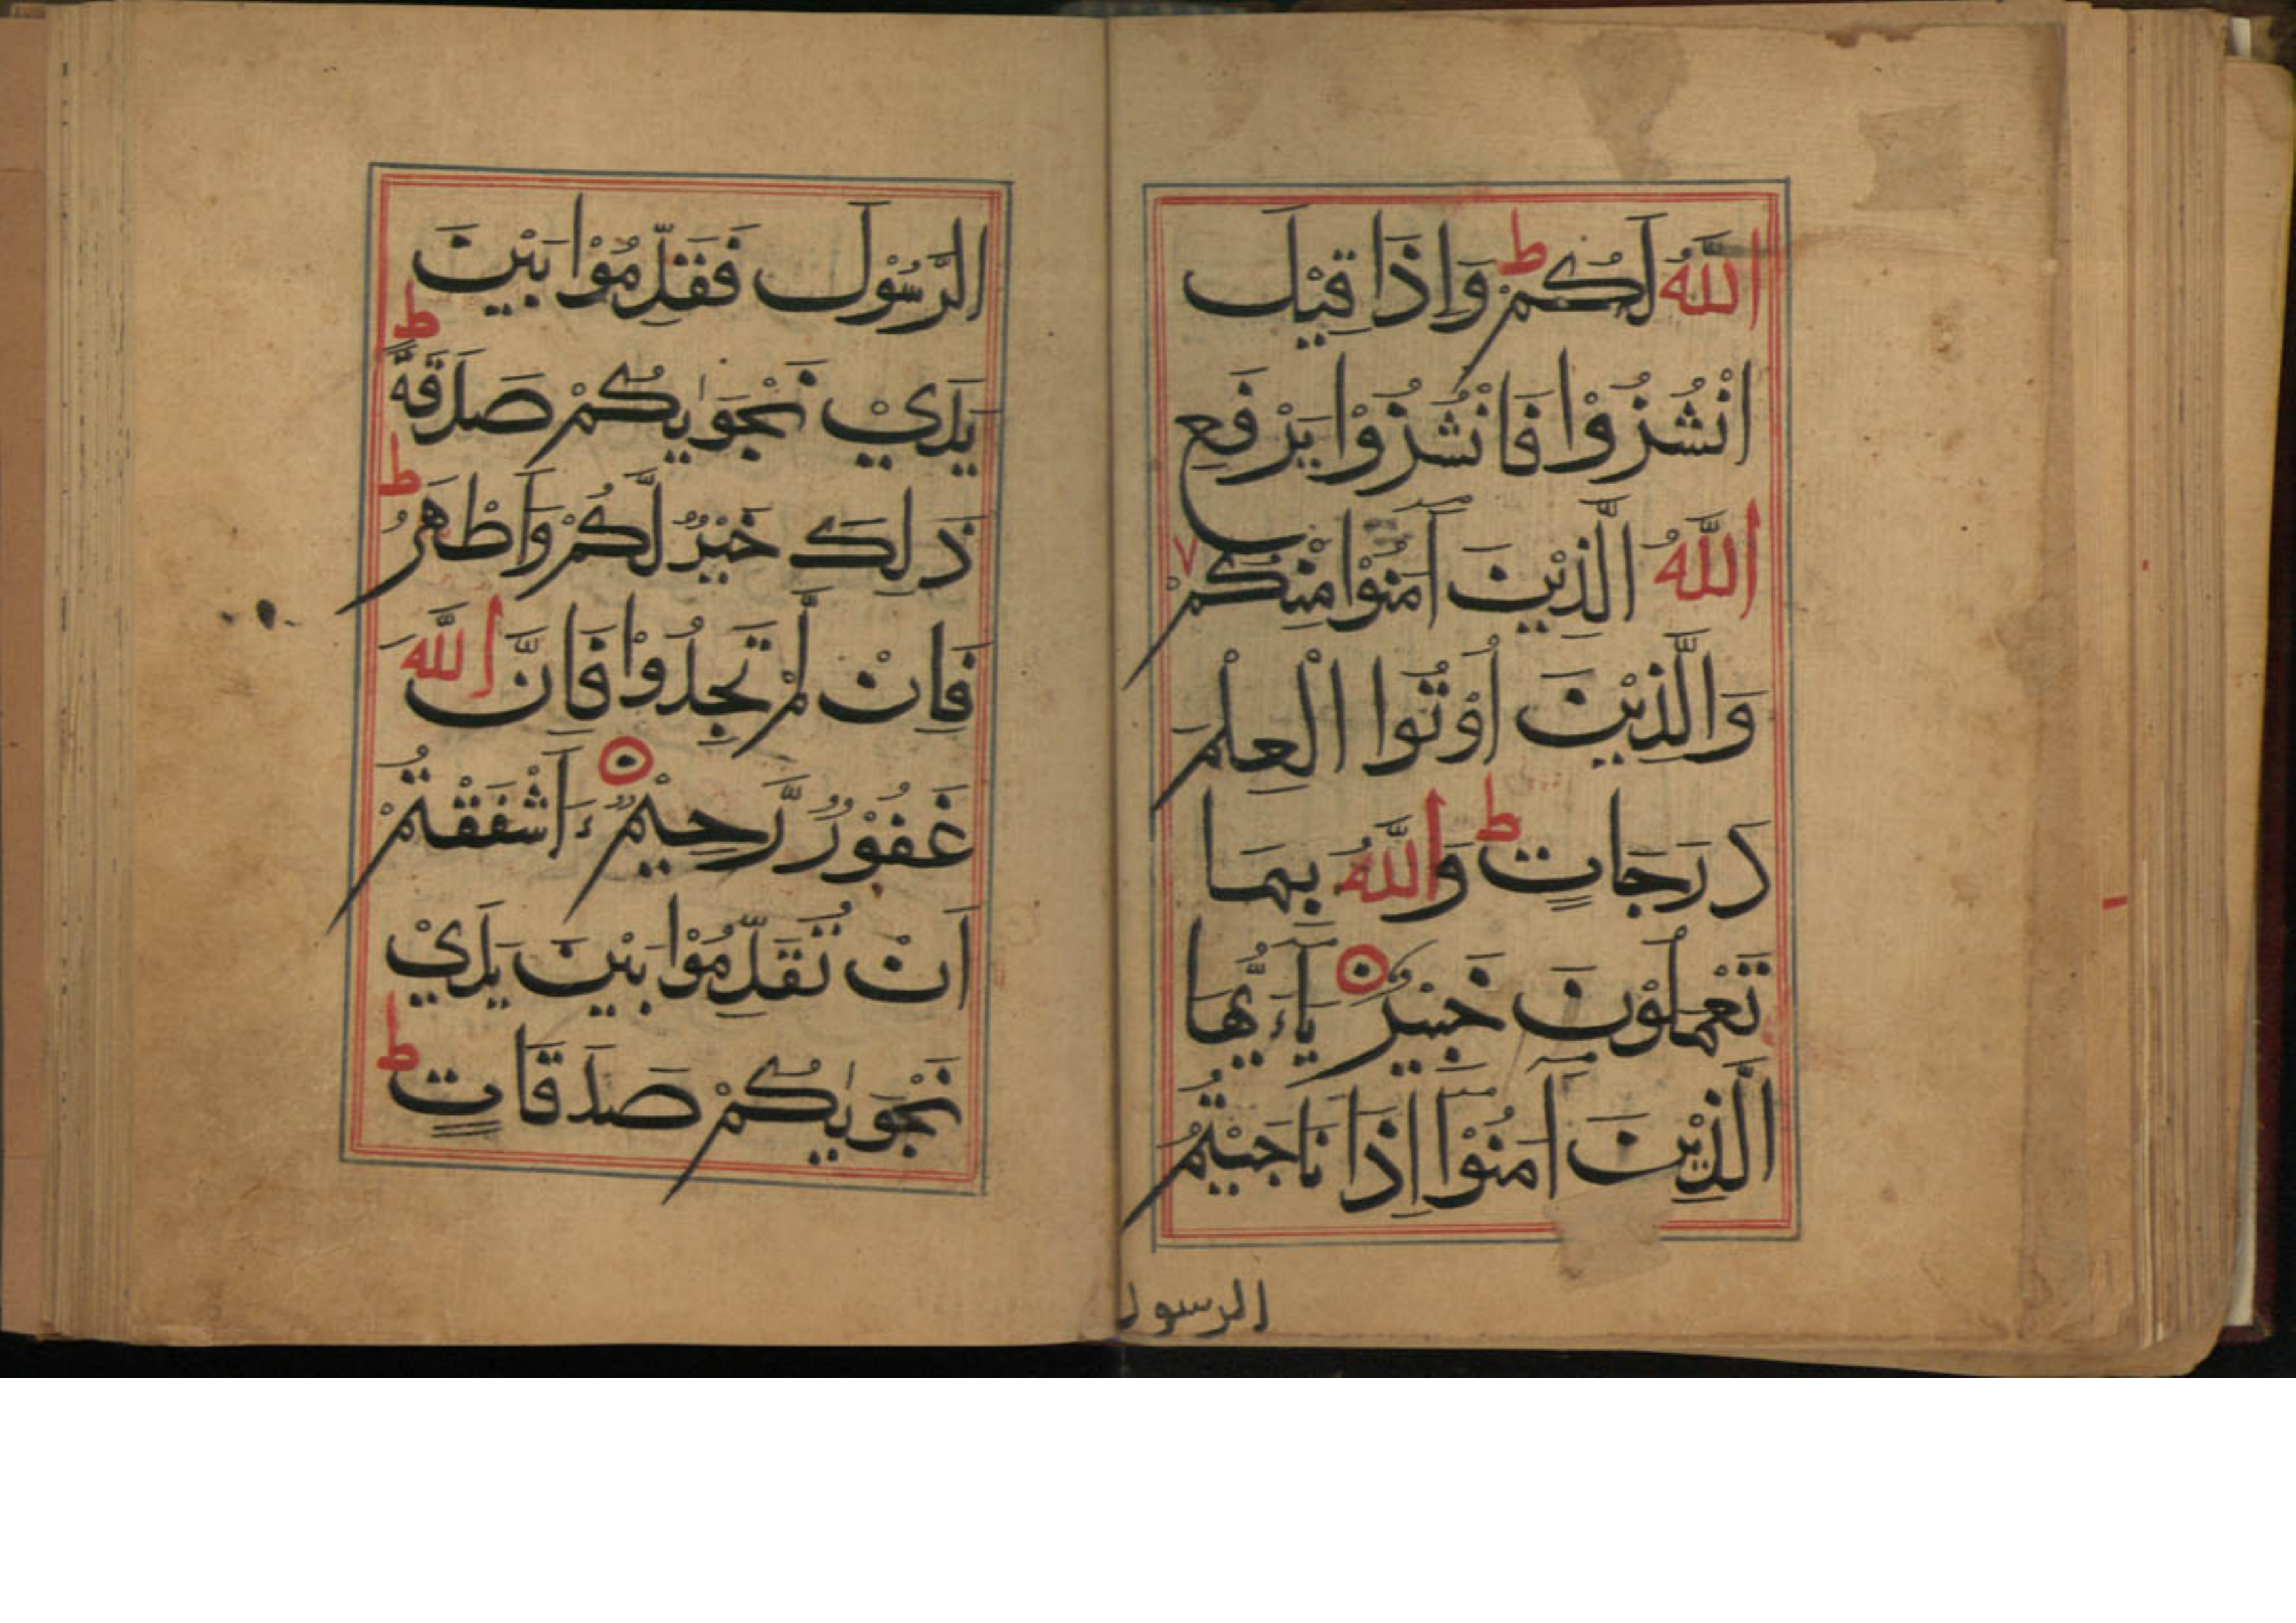 اللّٰهُ لَكُمْ ط وَاِذَا قِيْلَ
انْشُزُوْا فَانْشُزُوْا يَرْفَعِ
اللّٰهُ الَّذِيْنَ آمَنُوْا مِنْكُمْ ٧
وَالَّذِيْنَ اُوْتُوا الْعِلْمَ
دَرَجَاتٍ ط وَاللّٰهُ بِمَا
تَعْمَلُوْنَ خَبِيْرٌ ۝ يَاءَيُّهَا
الَّذِيْنَ آمَنُوْا اِذَا نَاجَيْتُمُ
الرسول
الرَّسُوْلَ فَقَدِّمُوْا بَيْنَ
يَدَيْ نَجْوٰيكُمْ صَدَقَةً ط
ذَلِكَ خَيْرٌ لَّكُمْ وَاَطْهَرُ ط
فَاِنْ لَّمْ تَجِدُوْا فَاِنَّ اللّٰهَ
غَفُوْرٌ رَّحِيْمٌ ۝ ءَاَشْفَقْتُمْ
اَنْ تُقَدِّمُوْا بَيْنَ يَدَيْ
نَجْوٰيكُمْ صَدَقَاتٍ ط